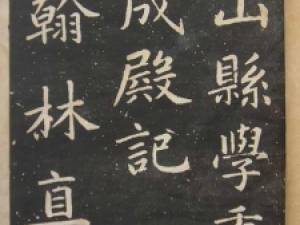 山縣學重
成殿記
翰林直